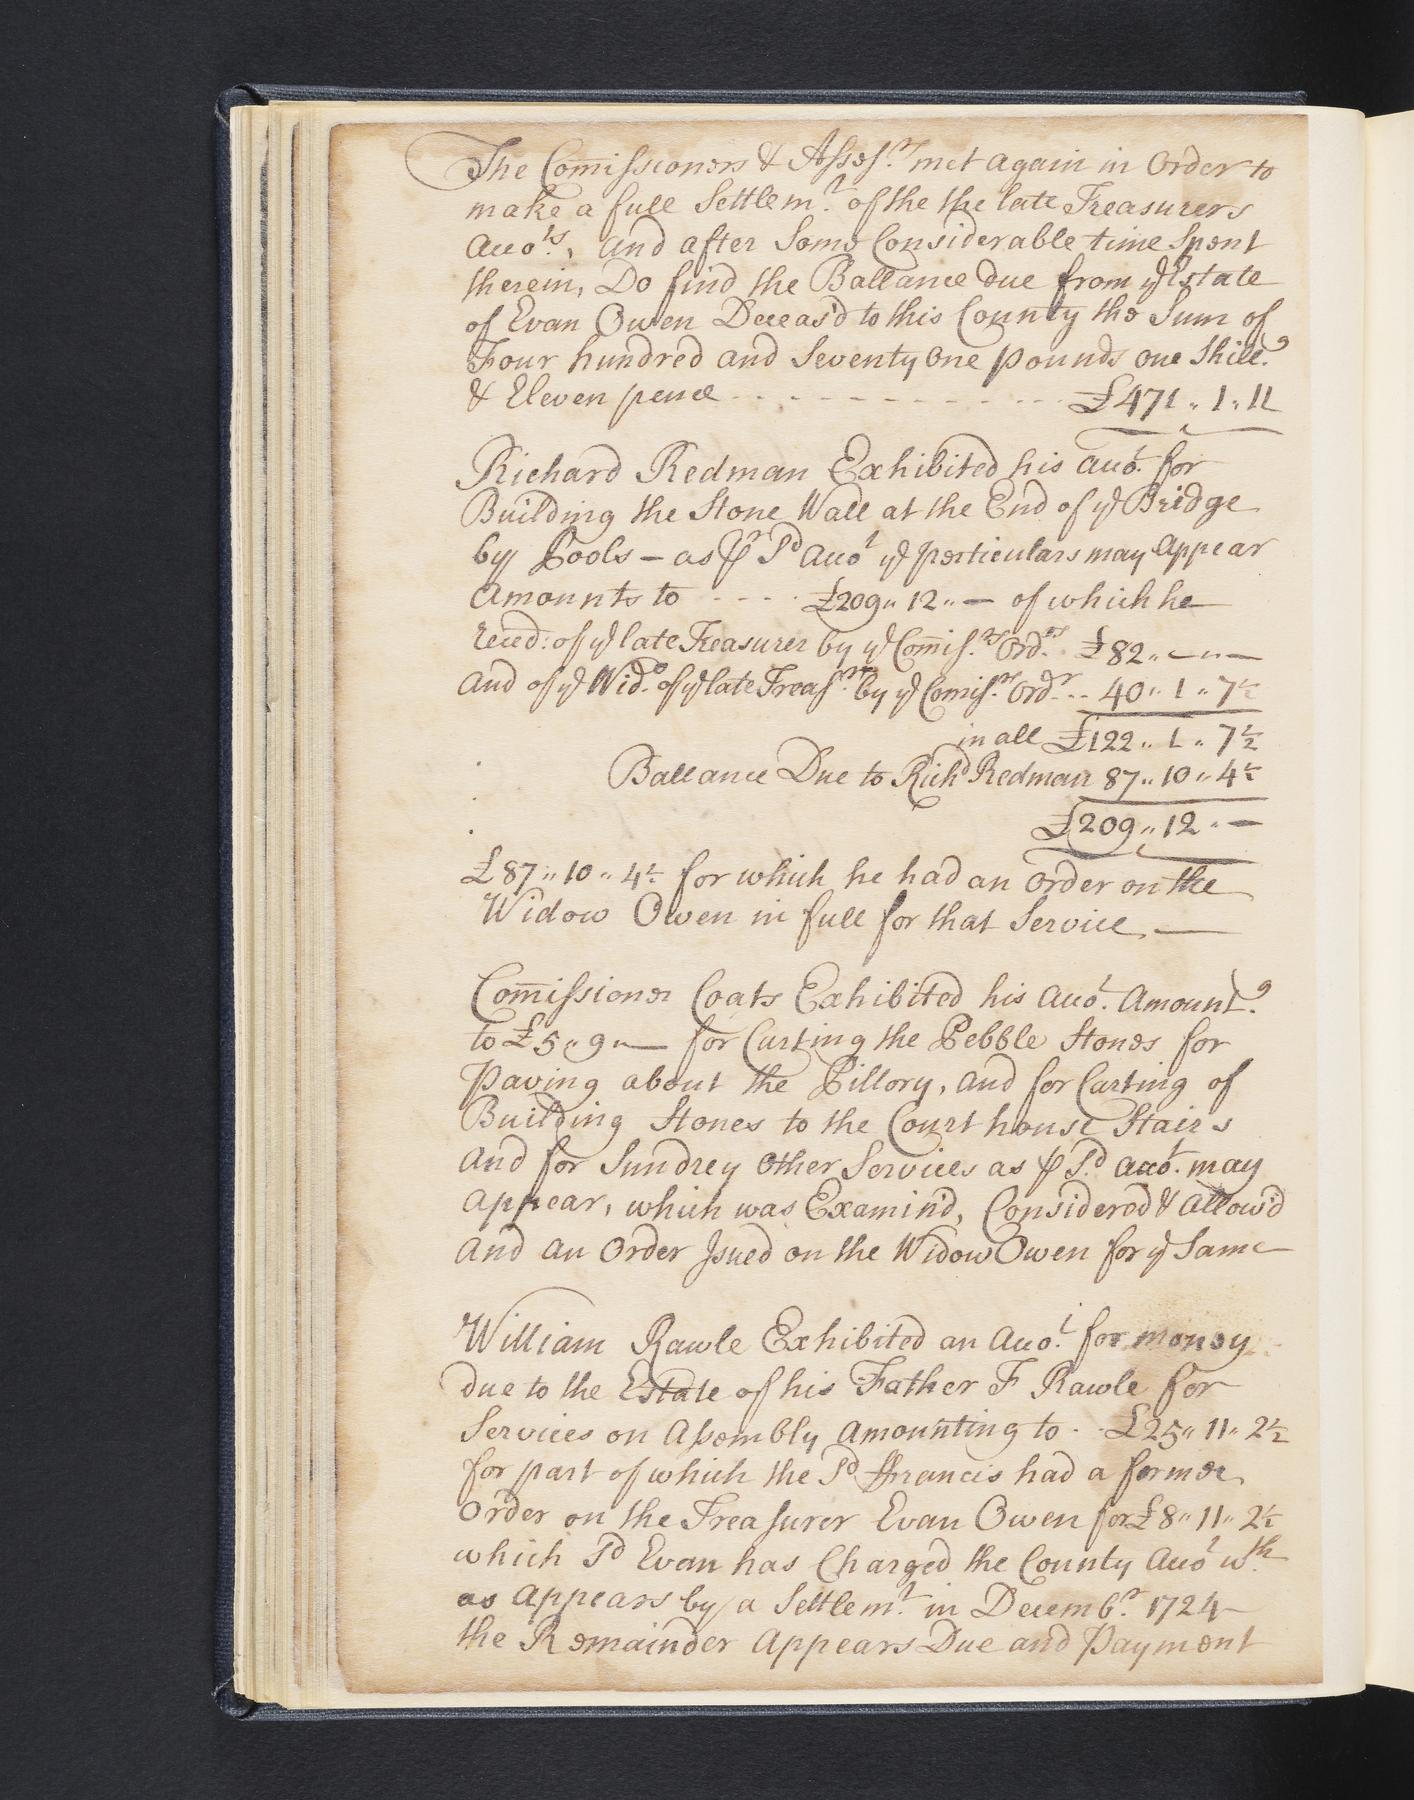 The Com̄issioners & Assesrs met again in Order to
make a full Settlemt of the the late Treasurers
Accots, and after Some Considerable time Spent
therein, Do find the Ballance due from ye Estate
of Evan Owen Deceas'd to this County the Sum of
Four hundred and Seventy One pounds one Shillg
& Eleven pence - - - - - - - - - - - £471 „ 1 „ 11
Richard Redman Exhibited his Accot. for
Building the Stone Wall at the End of ye Bridge
by Pools – as ꝑr Sd Accot ye perticulars may Appear
Amounts to - - - - £209 „ 12 „ — of which he
recd: of ye late Treasurer by ye Com̄isrs Ordrs £82 „ — „ —
and of ye Wido of ye late Treasrer by ye Comisrs Ordr - - 40 „ 1 „ 7½
in all £122 „ 1 „ 7½
Ballance Due to Richd Redman 87 „ 10 „ 4½
£209 „ 12 „ —
£87 „ 10 „ 4½ for which he had an Order on the
Widow Owen in full for that Service —
Com̄issioner Coats Exhibited his Accot. Amountg
to £5 „ 9 „ — for Carting the Pebble Stones for
Paving about the Pillory, and for Carting of
Building Stones to the Court house Stairs
and for Sundrey Other Services as ꝑ Sd Accot. may
appear, which was Examin'd, Considered & Allow'd
and an Order Isued on the Widow Owen for ye Same
William Rawle Exhibited an Accot. for money
due to the Estate of his Father F Rawle for
Services on Assembly Amounting to - - £25 „ 11 „ 2½
for part of which the Sd Francis had a former
Order on the Treasurer Evan Owen for £8 „ 11 „ 2½
which Sd Evan has Charged the County Accot wth
as Appears by a Settlemt in Decembr 1724
the Remainder Appears Due and Payment